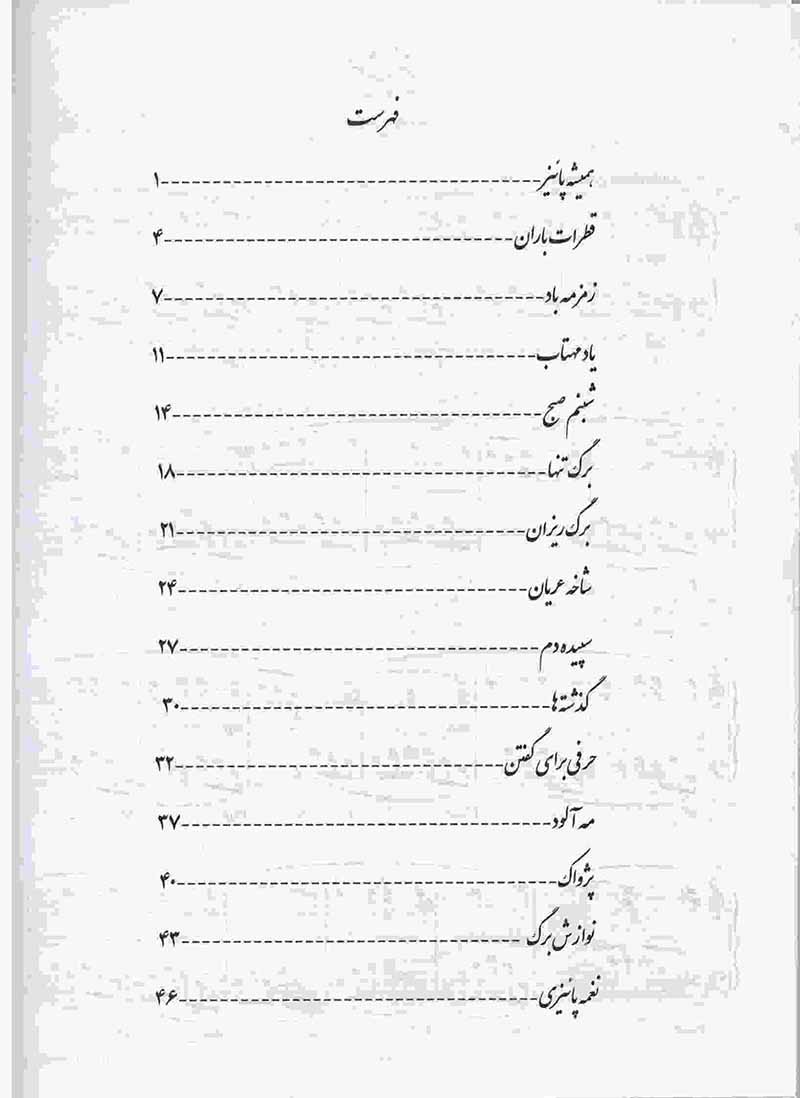 فهرست
همیشه پائیز ---------------------------------------- ۱
قطرات باران ------------------------------------- ۴
زمزمه باد ---------------------------------------- ۷
یاد مهتاب --------------------------------------- ۱۱
شبنم صبح --------------------------------------- ۱۴
برگ تنها --------------------------------------- ۱۸
برگ ریزان ------------------------------------- ۲۱
شاخه عریان ------------------------------------- ۲۴
سپیده دم -------------------------------------- ۲۷
گذشته ها --------------------------------------- ۳۰
حرفی برای گفتن ----------------------------------- ۳۲
مه آلود --------------------------------------- ۳۷
پژواک ---------------------------------------- ۴۰
نوازش برگ ------------------------------------ ۴۳
نغمه پائیزی -------------------------------------- ۴۶